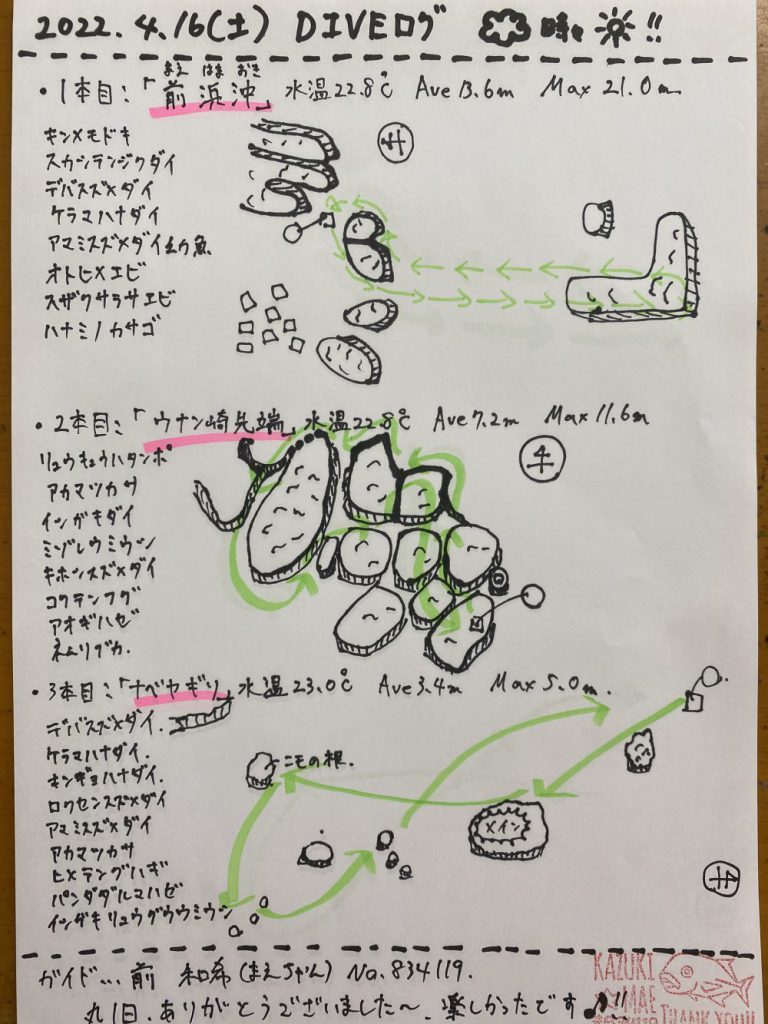 2022.4.16(土) DIVEログ 時々 !!
まえ はま おき
・1本目:「前浜沖」水温22.8℃ Ave 13.6m Max 21.0m
キンメモドキ
スカシテンジクダイ
デバスズメダイ
ケラマハナダイ
アマミスズメダイ幼魚
オトヒメエビ
スザクサラサエビ
ハナミノカサゴ
・2本目:「ウナン崎先端」水温22.8℃ Ave 7.2m Max 11.6m
リュウキュウハタンポ
アカマツカサ
イシガキダイ
ミゾレウミウシ
キホシスズメダイ
コクテンフグ
アオギハゼ
ネムリブカ.
・3本目:「ナベヤギリ」水温23.0℃ Ave 3.4m Max 5.0m.
デバスズメダイ.
ケラマハナダイ.
キンギョハナダイ.
ロクセンスズメダイ
アマミスズメダイ
アカマツカサ
ヒメテングハギ
パンダダルマハゼ
インダキリュウグウウミウシ
ニモの根.
メイン
ガイド... 前 和希(まえちゃん) No.834119.
丸1日、ありがとうございました〜. 楽しかったです♪!!
KAZUKI
MAE
THANK YOU!!